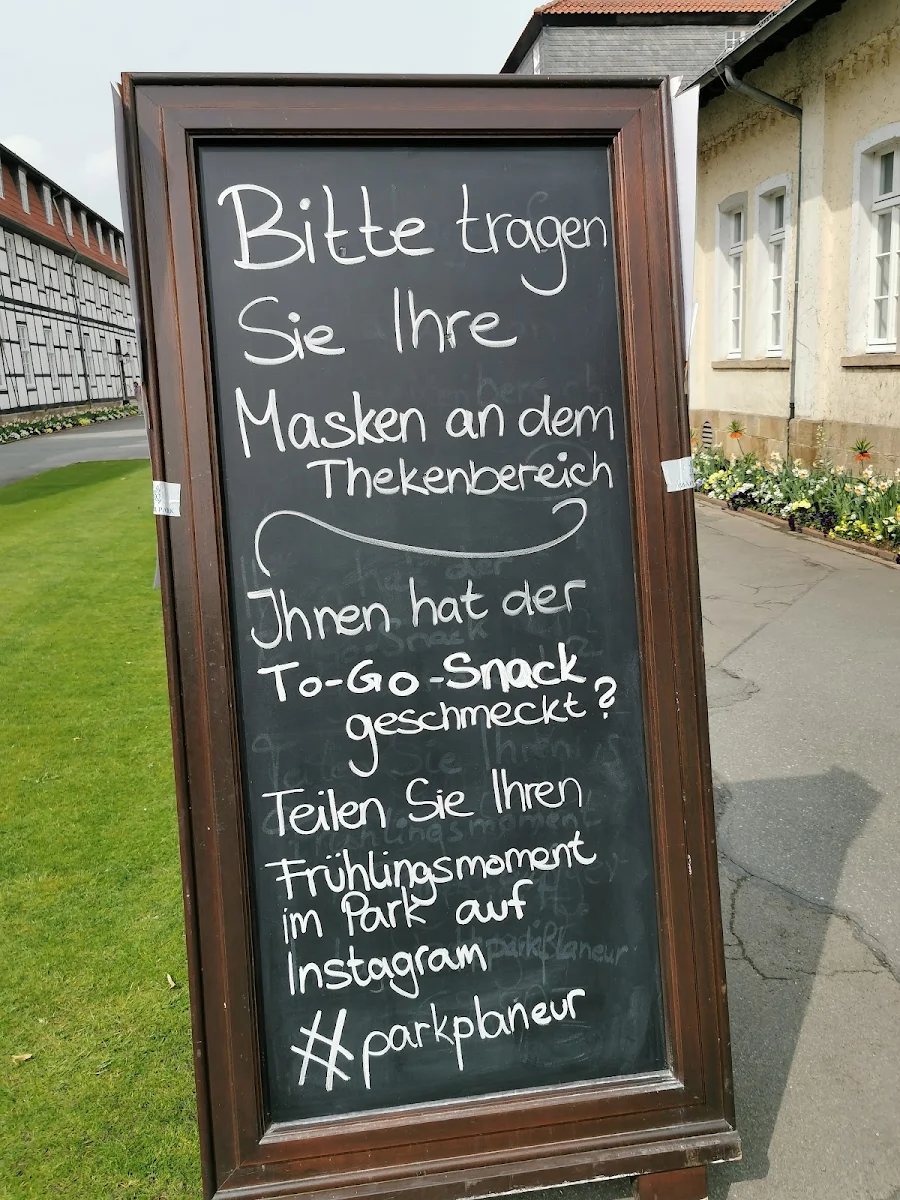 Bitte tragen
Sie Ihre
Masken an dem
Thekenbereich
Ihnen hat der
To-Go-Snack
geschmeckt?
Teilen Sie Ihren
Frühlingsmoment
im Park auf
Instagram
#parkplaneur